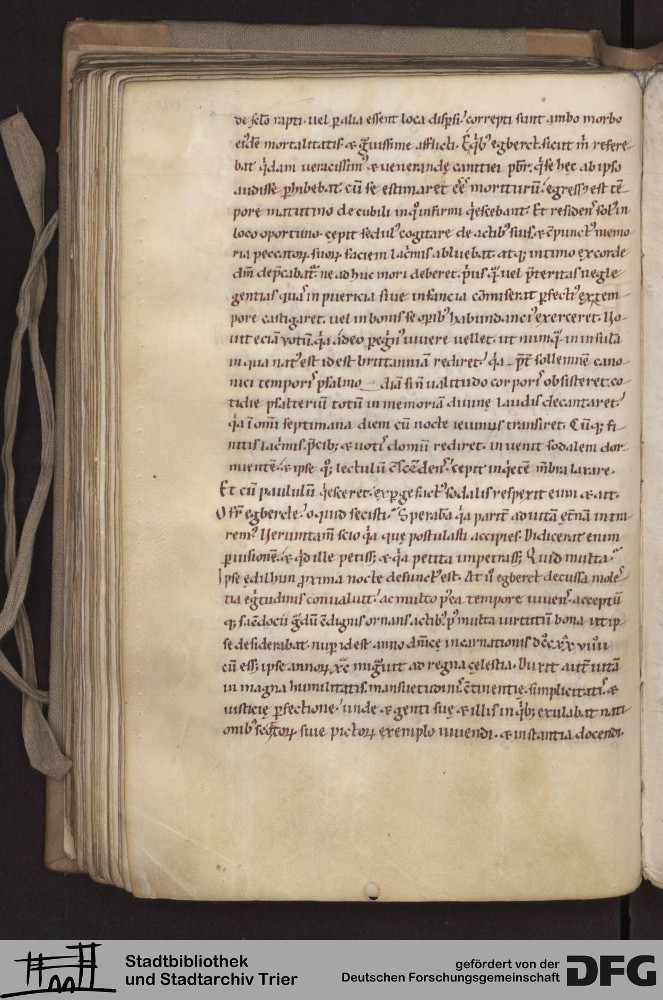 de sclo rapti. uel p alia essent loca dispsi. correpti sunt ambo morbo
eiusde mortalitatis & guissime afflicti. E qb; egberct sicut m refere
bat qdam ueracissim' & uenerandę canitiei pbr. q se hęc ab ipso
audisse phibebat. cu se estimaret ee moriturū. egress' est tē
pore matutino de cubili in quo infirmi qescebant. Et residens sol' in
loco oportuno. cepit sedul' cogitare de actib; suis. & cpunct' memo
ria peccatoꝝ suoꝝ faciem lacmis abluebat. atq; intimo ex corde
dm depcabat ne adhuc mori deberet. pus q uel pteritas negle
gentias quas in puericia siue infancia cōmiserat pfecti' ex tem
pore castigaret. uel in bonis se opib; habundanci' exerceret. Vo
uit eciā uotū. qa adeo pegrin' uiuere uellet. ut numq in insulā
in qua nat' est id est brittanniā rediret. qa pt sollemnē cano
nici temporis psalmodiā si n ualitudo corporis obsisteret. co
tidie psalteriū totū in memoriā diuinę laudis decantaret.
qa i omi septimana diem cū nocte ieiunus transiret. Cuq; fi
nitis lacmis. pcib; & uotis domū rediret. inuenit sodalem dor
mientē. & ipse quoq; lectulū cscendens. cepit in qete mbra laxare.
Et cū paululū qesceret. expgefact' sodalis respexit eum & ait.
O fr egbercte. o quid fecisti. Speraba qa parit ad uitā etnā intra
rem'. Verūtam scio qa quę postulasti accipies. Didicerat enim
p uisionem. & qd ille petiss; & qa petita impetrass; Quid multa.
Ipse ędilhun proxima nocte defunct' est. At u egberct decussa moles
tia egtudinis conualuit. ac multo postea tempore uiuens. acceptū
q; sacdocii gdū cdignis ornans actib; p' multa uirtutū bona ut ip
se desiderabat. nup id est anno dnicę incarnationis dcc xx viiii
cū ess; ipse annoꝝ xc miguit ad regna celestia. Duxit aut uitā
in magna humilitatis. mansuetudinis. ctinentię. simplicitatis. &
iusticię pfectione. unde & genti suę & illis in qb; exulabat nati
onib; scottoꝝ siue pictoꝝ exemplo uiuendi. & instantia docendi.
Stadtbibliothek
und Stadtarchiv Trier
gefördert von der
Deutschen Forschungsgemeinschaft
DFG